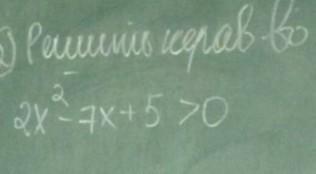 2) Решить нерав-во
2x² - 7x + 5 > 0